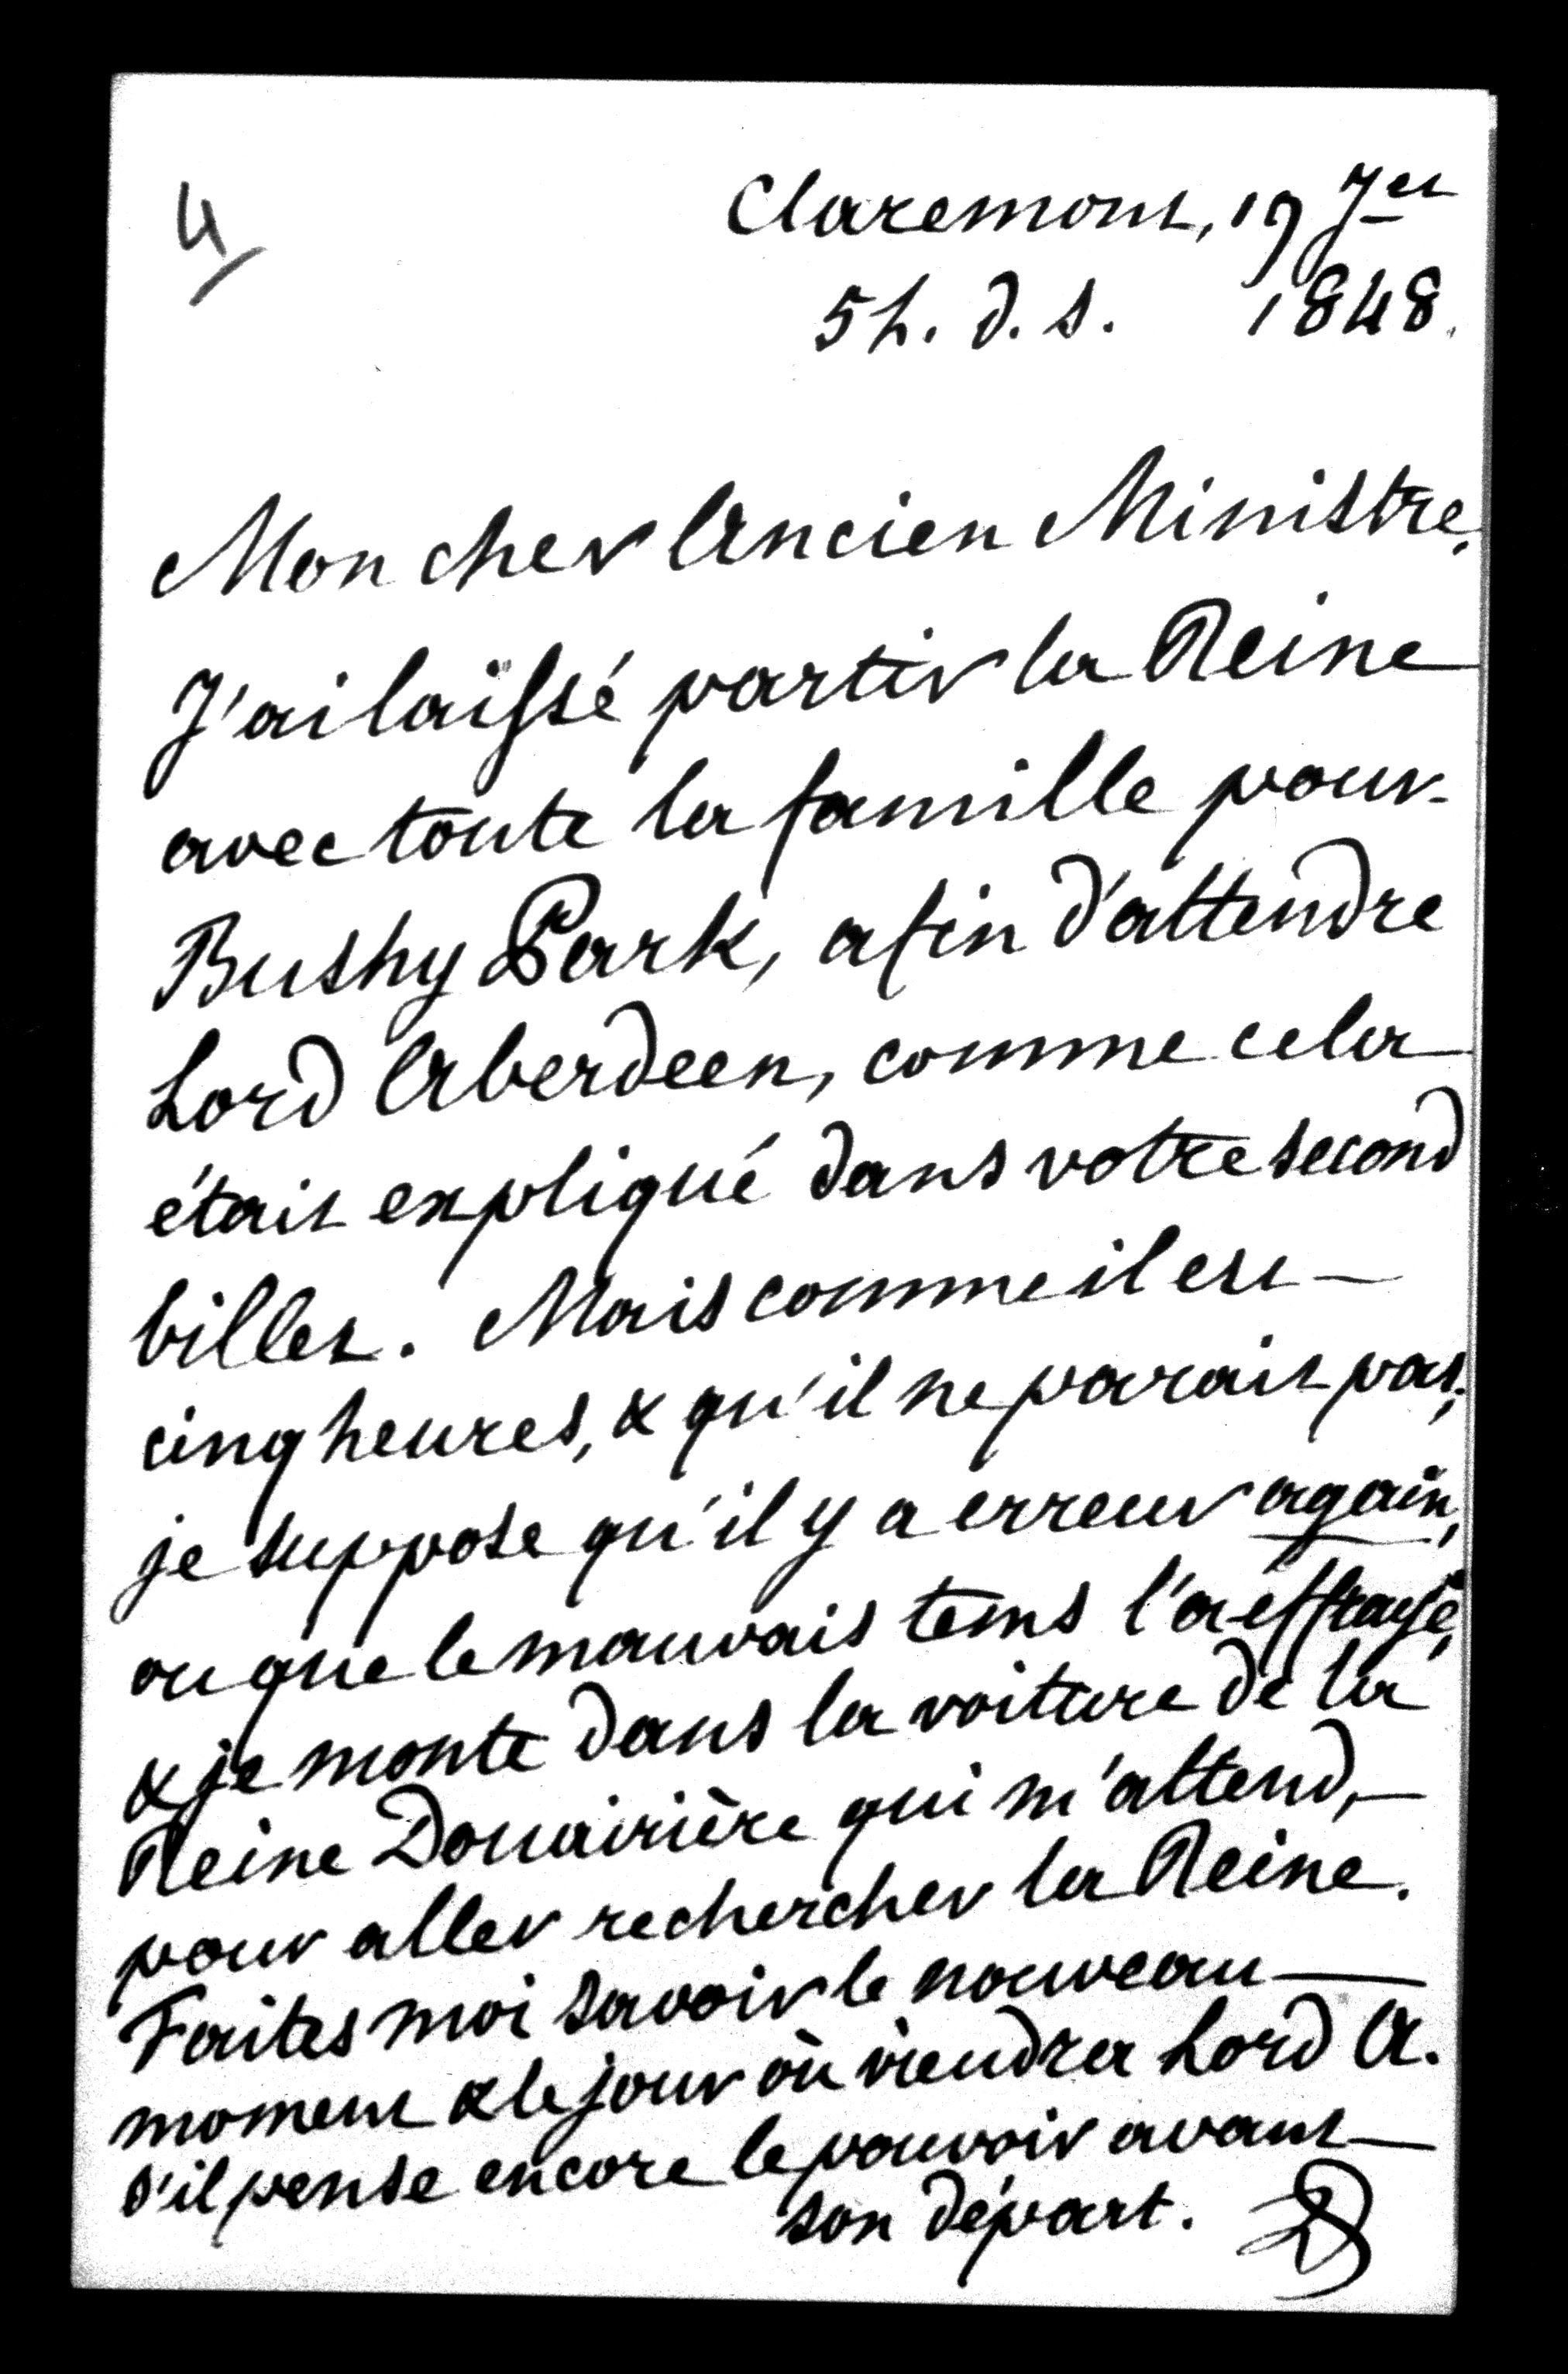 4
Claremont, 19 7er
5 h. d. s. 1848.
Mon cher Ancien Ministre,
J'ai laissé partir la Reine
avec toute la famille pour
Bushy Park, afin d'attendre
Lord Aberdeen, comme cela
était expliqué dans votre second
billet. Mais comme il est —
cinq heures, & qu'il ne parait pas,
je suppose qu'il y a erreur again,
ou que le mauvais tems l'a effrayé,
& je monte dans la voiture de la
Reine Douairière qui m'attend, —
pour aller rechercher la Reine.
Faites moi savoir le nouveau —
moment & le jour où viendra Lord A.
s'il pense encore le pouvoir avant —
son départ.